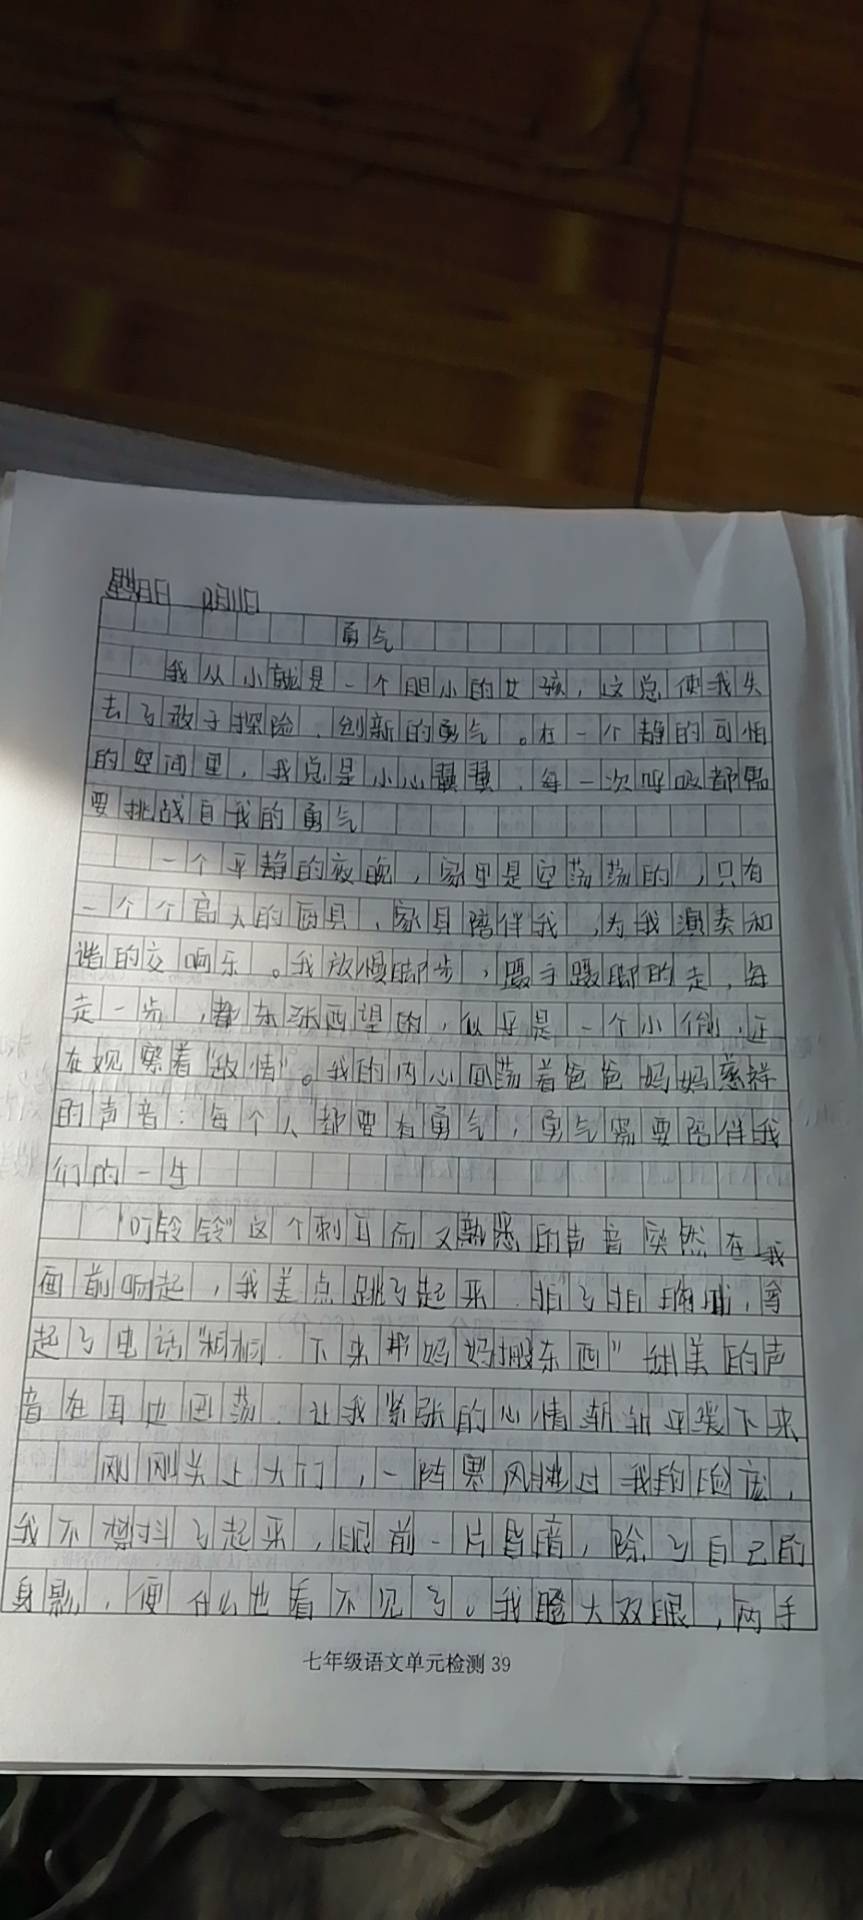 星期日 12月11日
勇气
我从小就是一个胆小的女孩，这总使我失
去了敢于探险、创新的勇气。在一个静的可怕
的空间里，我总是小心翼翼，每一次呼吸都需
要挑战自我的勇气
一个平静的夜晚，家里是空荡荡的，只有
一个个高大的面具、家具陪伴我，为我演奏和
谐的交响乐。我放慢脚步，蹑手蹑脚的走，每
走一步，都东张西望的，似乎是一个小偷，正
在观察着“敌情”。我的内心回荡着爸爸妈妈慈祥
的声音：每个人都要有勇气，勇气需要陪伴我
们的一生
“叮铃铃”这个刺耳而又熟悉的声音突然在我
面前响起，我差点跳了起来 拍了拍胸脯，拿
起了电话“桐桐 下来帮妈妈搬东西” 甜美的声
音在耳边回荡，让我紧张的心情渐渐平缓下来
刚刚关上大门，一阵寒风挑过我的脸庞，
我不禁抖了起来，眼前一片昏暗，除了自己的
身影，便什么也看不见了。我瞪大双眼，两手
七年级语文单元检测 39